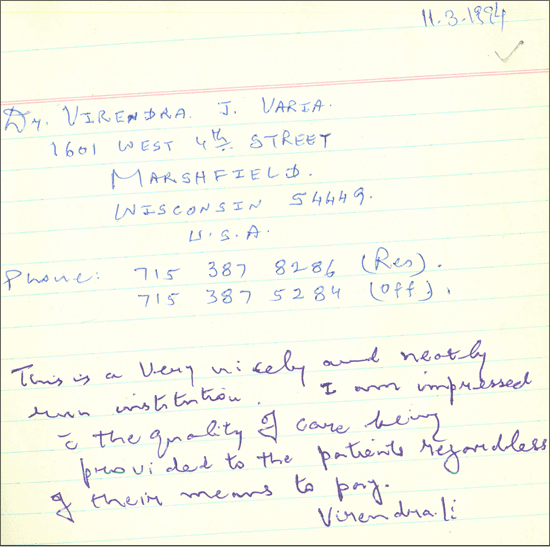 11.3.1994
Dr. VIRENDRA. J. VARIA.
1601 WEST 4th. STREET
MARSHFIELD.
WISCONSIN 54449.
U.S.A.
Phone: 715 387 8286 (Res).
715 387 5284 (Off).
This is a very nicely and neatly
run institution. I am impressed
c̄ the quality of care being
provided to the patients regardless
of their means to pay.